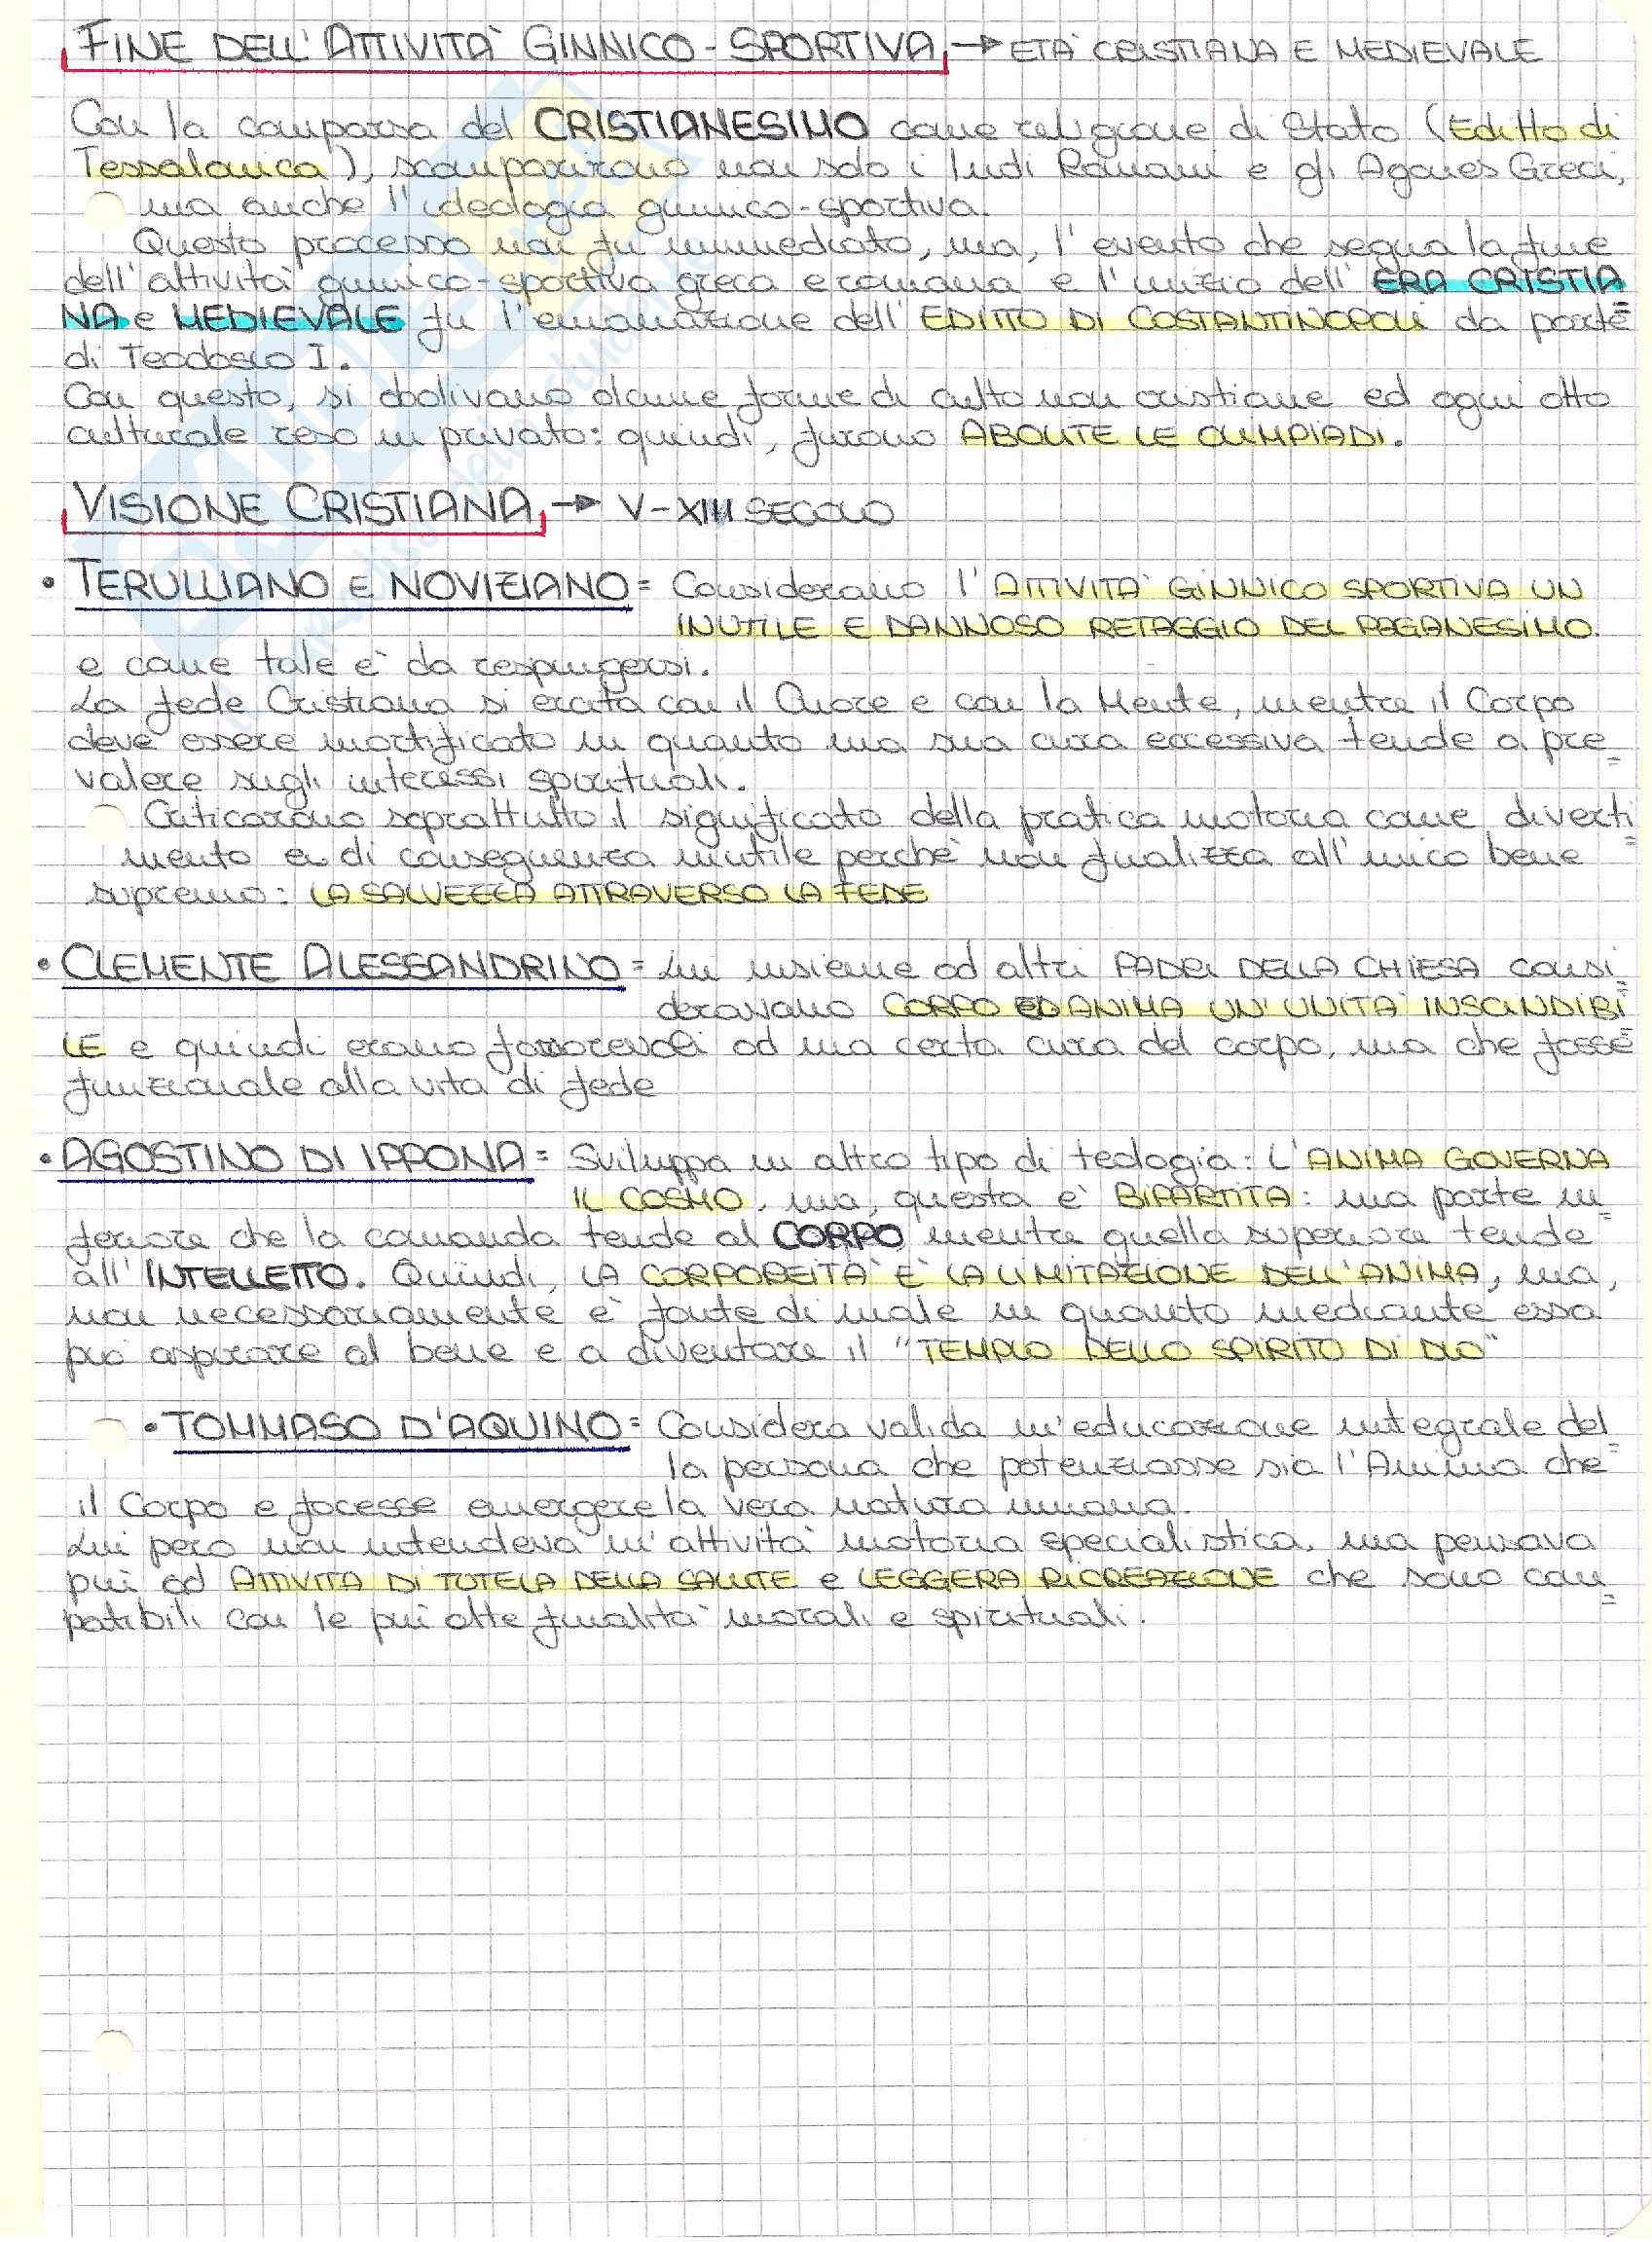 FINE DELL'ATTIVITÀ GINNICO-SPORTIVA → ETÀ CRISTIANA E MEDIEVALE
Con la comparsa del CRISTIANESIMO come religione di Stato (Editto di
Tessalonica), scomparirono non solo i ludi Romani e gli Agones Greci,
ma anche l'ideologia ginnico-sportiva.
Questo processo non fu immediato, ma, l'evento che segna la fine
dell'attività ginnico-sportiva greca e romana e l'inizio dell'ERA CRISTIA
NA e MEDIEVALE fu l'emanazione dell'EDITTO DI COSTANTINOPOLI da parte
di Teodosio I.
Con questo, si abolivano alcune forme di culto non cristiane ed ogni atto
culturale reso in privato: quindi, furono ABOLITE LE OLIMPIADI.
VISIONE CRISTIANA → V-XIII SECOLO
• TERULLIANO E NOVIZIANO = Considerano l'ATTIVITÀ GINNICO SPORTIVA UN
INUTILE E DANNOSO RETAGGIO DEL PAGANESIMO.
e come tale è da respingersi.
La fede Cristiana si ercita con il Cuore e con la Mente, mentre il Corpo
deve essere mortificato in quanto una sua cura eccessiva tende a pre
valere sugli interessi spirituali.
Criticarono soprattutto il significato della pratica motoria come diverti
mento e di conseguenza inutile perchè non finalizza all'unico bene
supremo: LA SALVEZZA ATTRAVERSO LA FEDE
• CLEMENTE ALESSANDRINO = Lui insieme ad altri PADRI DELLA CHIESA consi
deravano CORPO ED ANIMA UN'UNITÀ INSCINDIBI
LE e quindi erano favorevoli ad una certa cura del corpo, ma che fosse
funzionale alla vita di fede
• AGOSTINO DI IPPONA = Sviluppa un altro tipo di teologia: L'ANIMA GOVERNA
IL COSMO, ma, questa è BIPARTITA: una parte in
feriore che la comanda tende al CORPO mentre quella superiore tende
all'INTELLETTO. Quindi, LA CORPOREITÀ È LA LIMITAZIONE DELL'ANIMA, ma,
non necessariamente è fonte di male in quanto mediante essa
può aspirare al bene e a diventare il "TEMPIO DELLO SPIRITO DI DIO"
• TOMMASO D'AQUINO = Considera valida un'educazione integrale del
la persona che potenziasse sia l'Anima che
il Corpo e facesse emergere la vera natura umana.
Lui però non intendeva un'attività motoria specialistica, ma pensava
più ad ATTIVITÀ DI TUTELA DELLA SALUTE e LEGGERA RICREAZIONE che sono com
patibili con le più alte finalità morali e spirituali.